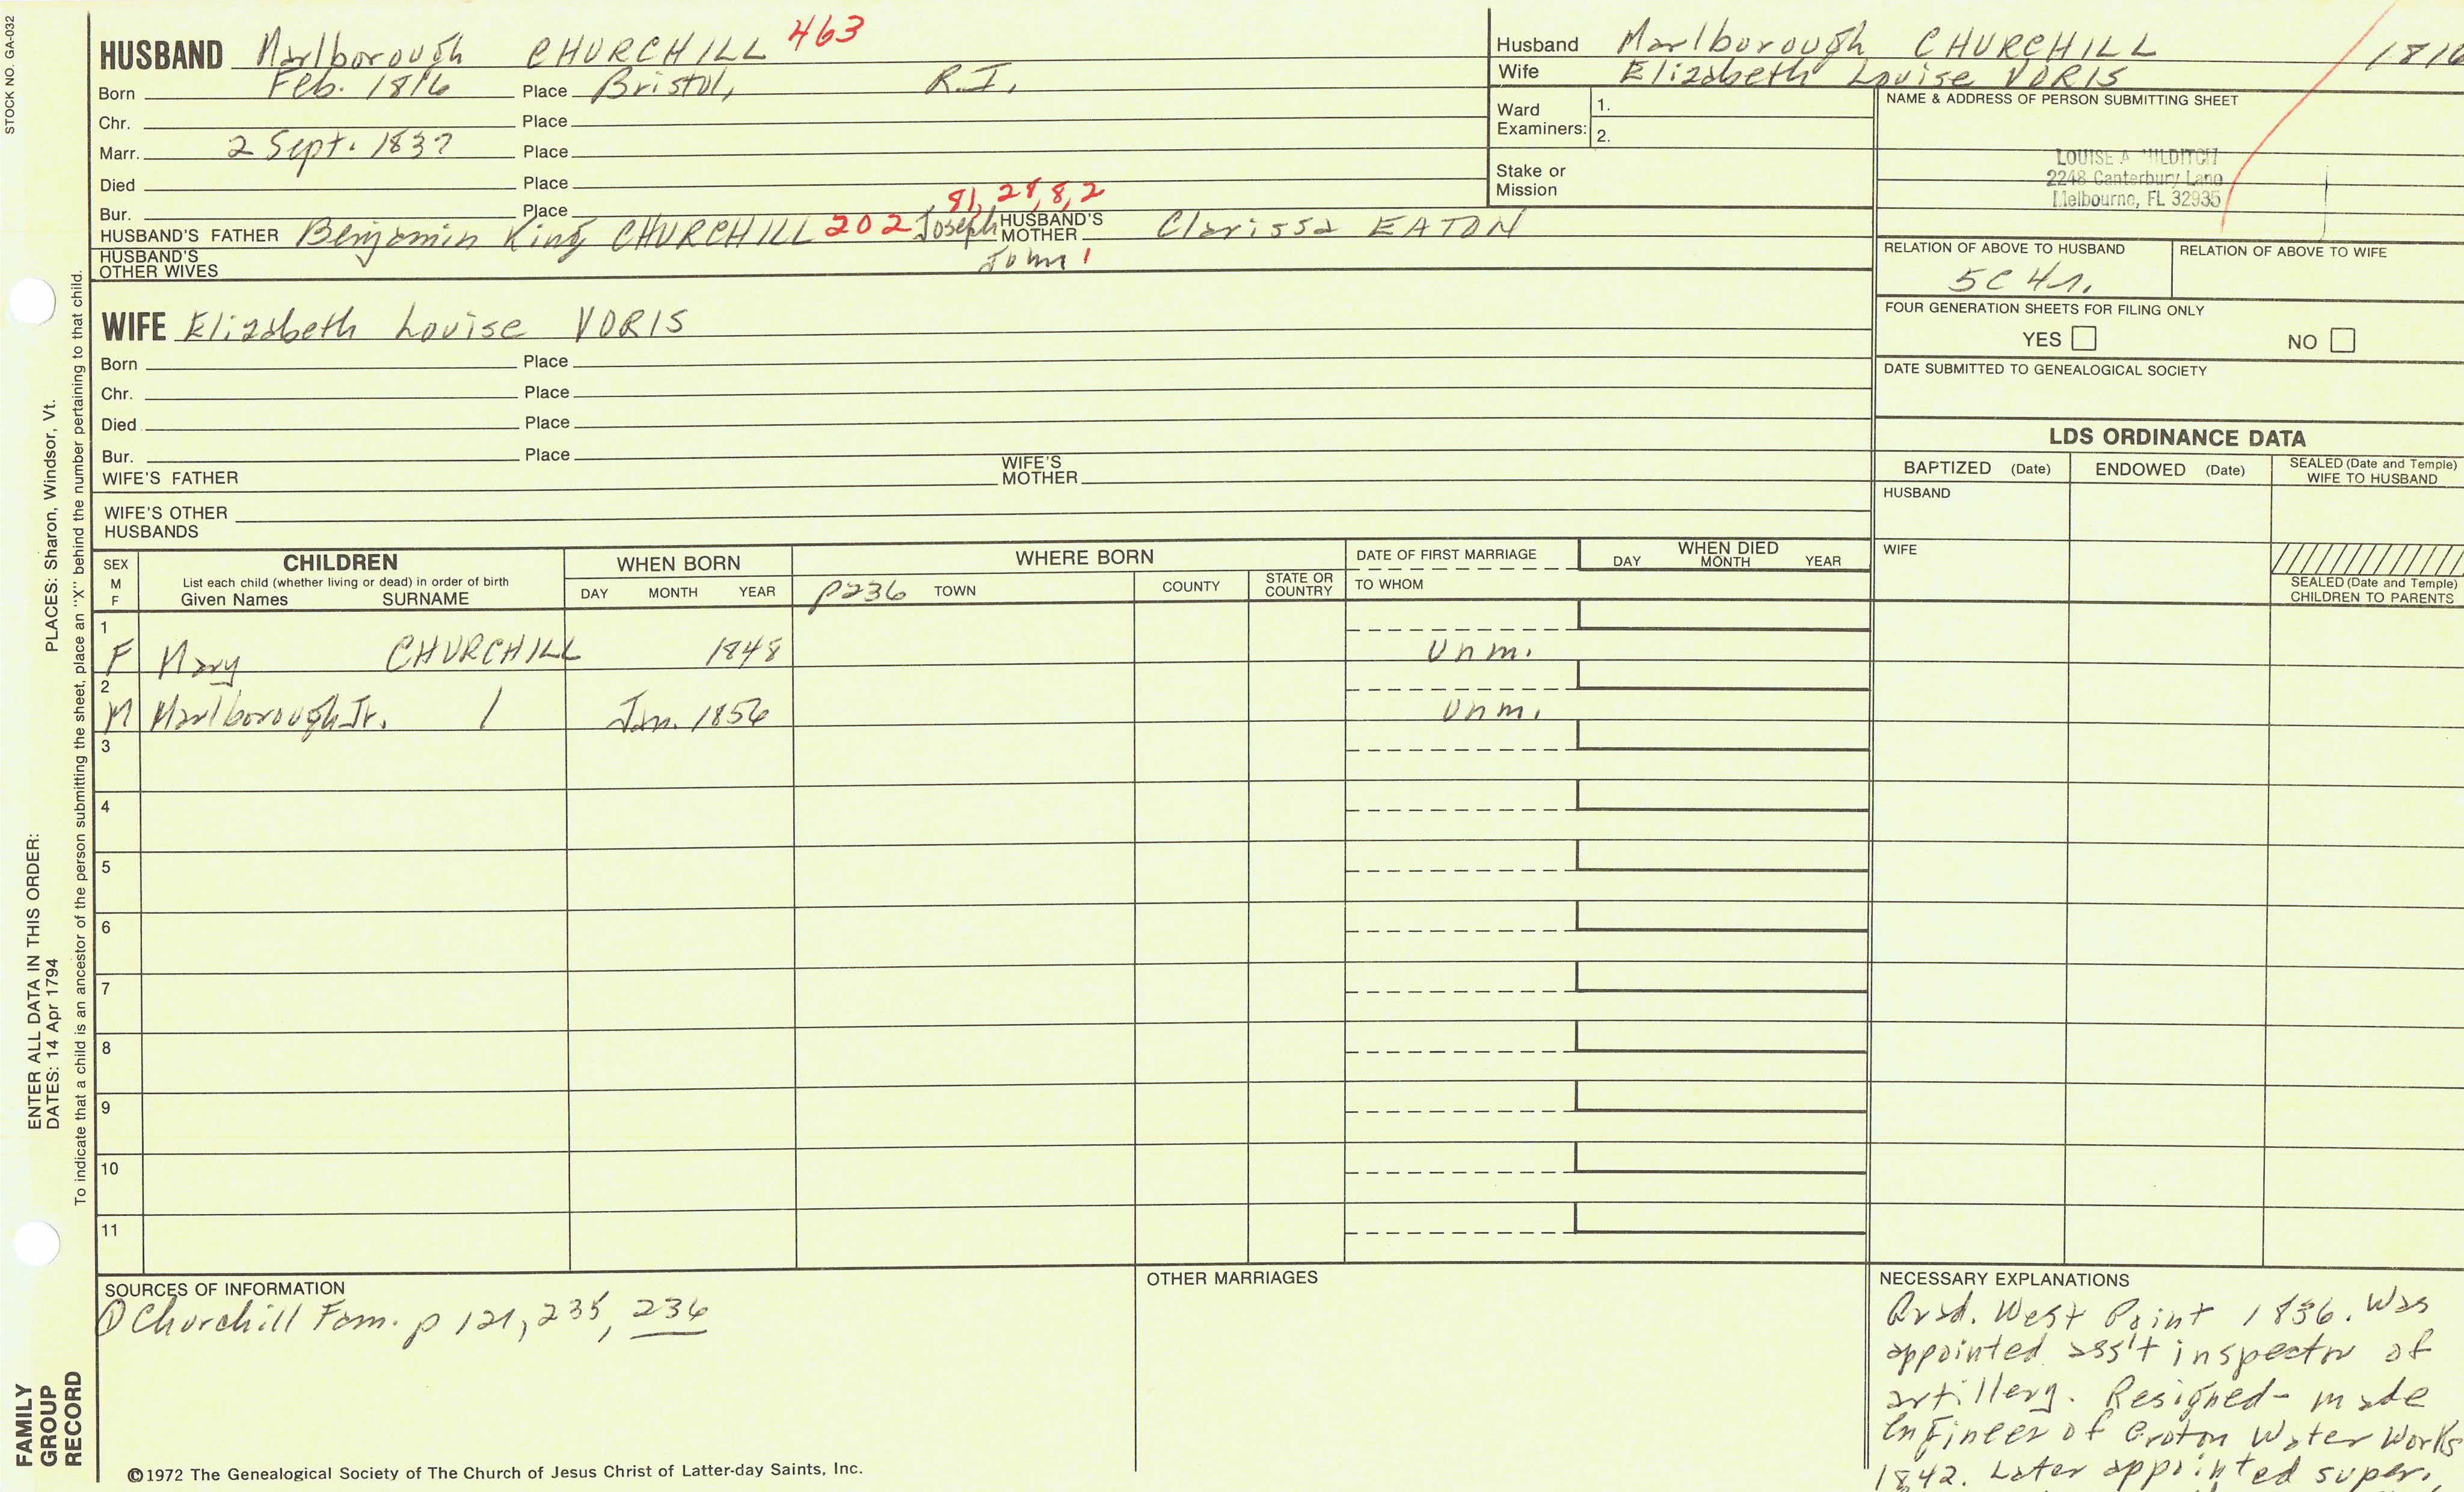 STOCK NO. GA-032
HUSBAND Marlborough CHURCHILL 463
Born Feb. 1816 Place Bristol, R.I.
Chr. Place
Marr. 2 Sept. 1837 Place
Died Place
Bur. Place
81, 28, 8, 2
HUSBAND'S FATHER Benjamin King CHURCHILL 202 Joseph HUSBAND'S MOTHER Clarissa EATON
HUSBAND'S OTHER WIVES John 1
Husband Marlborough CHURCHILL 1816
Wife Elizabeth Louise VORIS
Ward Examiners: 1.
2.
Stake or Mission
NAME & ADDRESS OF PERSON SUBMITTING SHEET
LOUISE A
2248 Canterbury Lane
Melbourne, FL 32935
RELATION OF ABOVE TO HUSBAND
5C 4r.
RELATION OF ABOVE TO WIFE
FOUR GENERATION SHEETS FOR FILING ONLY
YES NO
DATE SUBMITTED TO GENEALOGICAL SOCIETY
WIFE Elizabeth Louise VORIS
Born Place
Chr. Place
Died Place
Bur. Place
WIFE'S FATHER WIFE'S MOTHER
WIFE'S OTHER HUSBANDS
LDS ORDINANCE DATA
BAPTIZED (Date) ENDOWED (Date) SEALED (Date and Temple) WIFE TO HUSBAND
HUSBAND
WIFE
SEALED (Date and Temple) CHILDREN TO PARENTS
SEX M F
CHILDREN
List each child (whether living or dead) in order of birth
Given Names SURNAME
WHEN BORN
DAY MONTH YEAR
WHERE BORN
p236 TOWN COUNTY STATE OR COUNTRY
DATE OF FIRST MARRIAGE
TO WHOM
WHEN DIED
DAY MONTH YEAR
1
F Mary CHURCHILL 1848 Unm.
2
M Marlborough Jr. / Jan. 1856 Unm.
3
4
5
6
7
8
9
10
11
SOURCES OF INFORMATION
① Churchill Fam. p 121, 235, 236
OTHER MARRIAGES
NECESSARY EXPLANATIONS
Grad. West Point 1836. Was
appointed ass't inspector of
artillery. Resigned- made
Engineer of Croton Water Works
1842. Later appointed super.
©1972 The Genealogical Society of The Church of Jesus Christ of Latter-day Saints, Inc.
FAMILY
GROUP
RECORD
ENTER ALL DATA IN THIS ORDER:
DATES: 14 Apr 1794 PLACES: Sharon, Windsor, Vt.
To indicate that a child is an ancestor of the person submitting the sheet, place an "X" behind the number pertaining to that child.